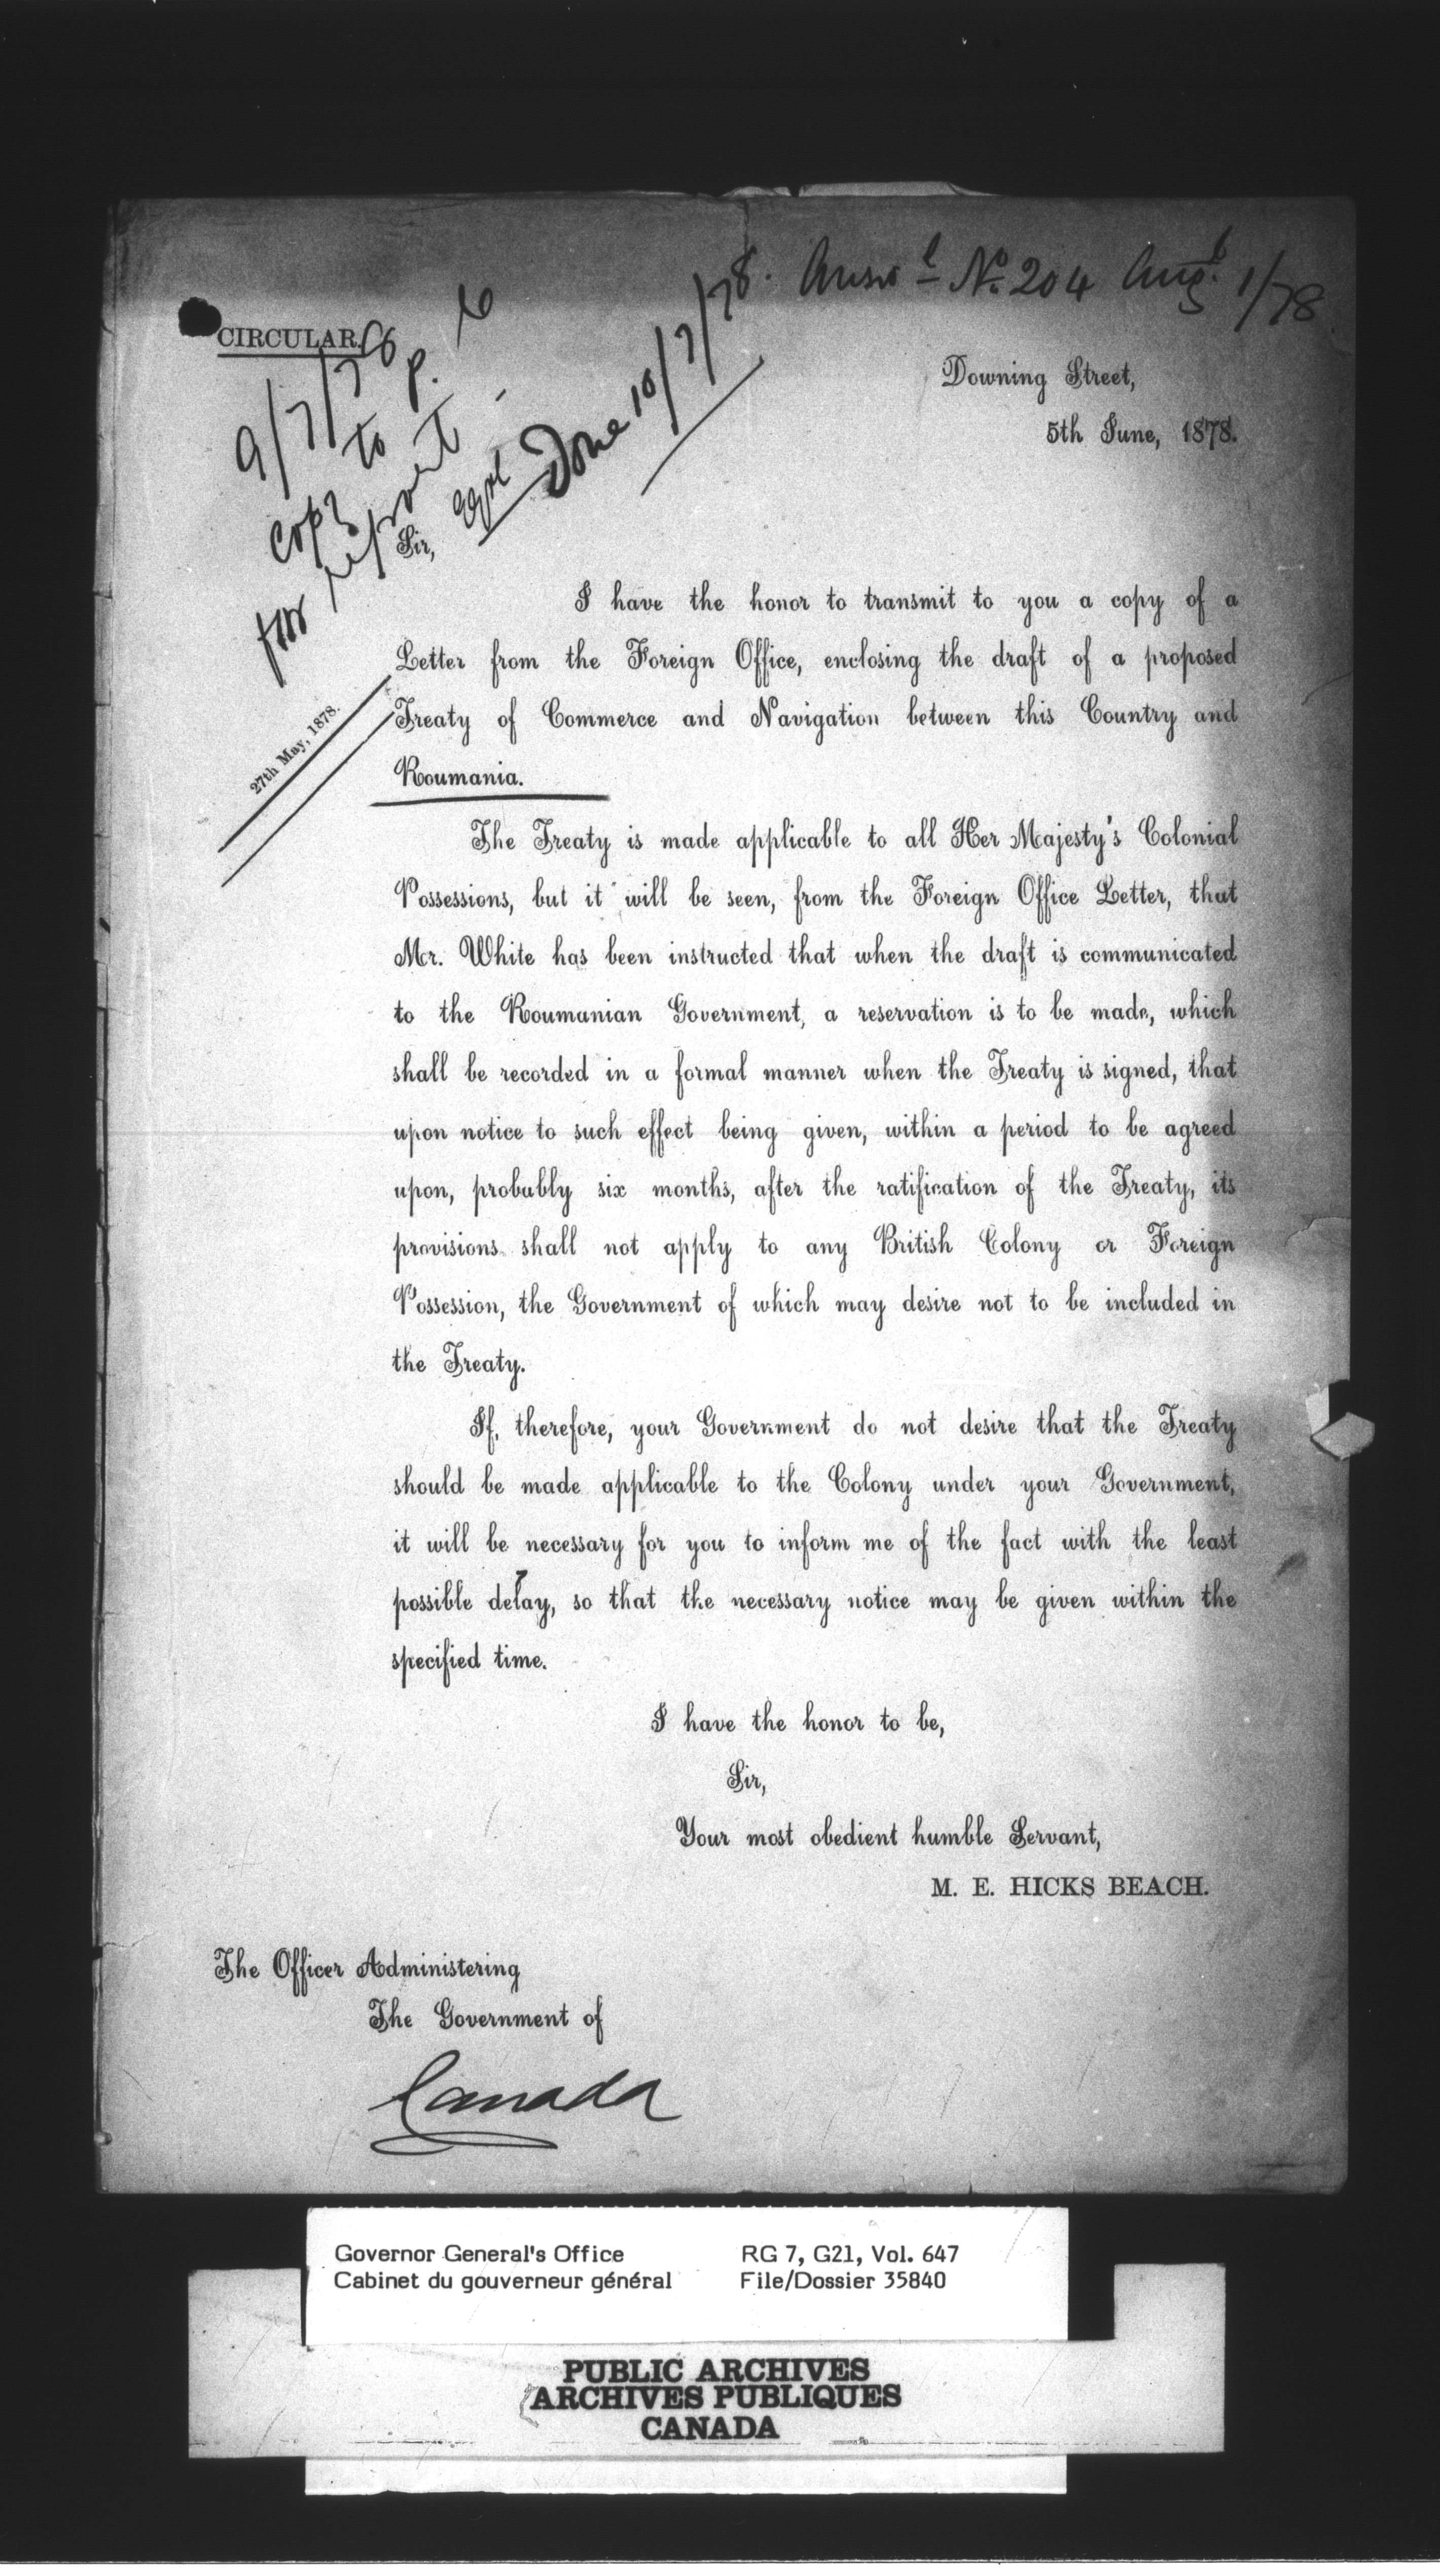 Answd No. 204 Augt 1/78
CIRCULAR.
9/7/78
copy to P. C
for report
Done 10/7/78.
Downing Street,
5th June, 1878.
Sir,
I have the honor to transmit to you a copy of a
Letter from the Foreign Office, enclosing the draft of a proposed
27th May, 1878.
Treaty of Commerce and Navigation between this Country and
Roumania.
The Treaty is made applicable to all Her Majesty's Colonial
Possessions, but it will be seen, from the Foreign Office Letter, that
Mr. White has been instructed that when the draft is communicated
to the Roumanian Government, a reservation is to be made, which
shall be recorded in a formal manner when the Treaty is signed, that
upon notice to such effect being given, within a period to be agreed
upon, probably six months, after the ratification of the Treaty, its
provisions shall not apply to any British Colony or Foreign
Possession, the Government of which may desire not to be included in
the Treaty.
If, therefore, your Government do not desire that the Treaty
should be made applicable to the Colony under your Government,
it will be necessary for you to inform me of the fact with the least
possible delay, so that the necessary notice may be given within the
specified time.
I have the honor to be,
Sir,
Your most obedient humble Servant,
M. E. HICKS BEACH.
The Officer Administering
The Government of
Canada
Governor General's Office RG 7, G21, Vol. 647
Cabinet du gouverneur général File/Dossier 35840
PUBLIC ARCHIVES
ARCHIVES PUBLIQUES
CANADA